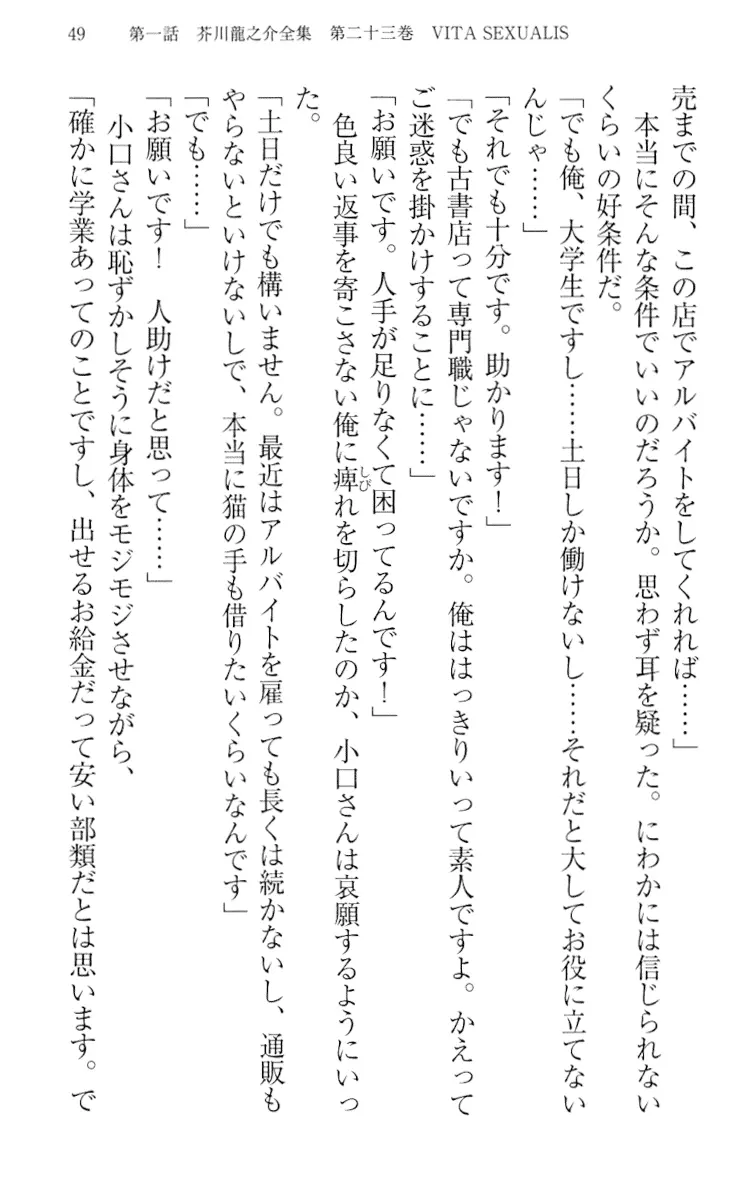 49　第一話　芥川龍之介全集　第二十三巻　VITA SEXUALIS
売までの間、この店でアルバイトをしてくれれば……」
　本当にそんな条件でいいのだろうか。思わず耳を疑った。にわかには信じられない
くらいの好条件だ。
「でも俺、大学生ですし……土日しか働けないし……それだと大してお役に立てない
んじゃ……」
「それでも十分です。助かります！」
「でも古書店って専門職じゃないですか。俺ははっきりいって素人ですよ。かえって
ご迷惑を掛かけすることに……」
「お願いです。人手が足りなくて困ってるんです！」
　色良い返事を寄こさない俺に痺れを切らしたのか、小口さんは哀願するようにいっ
しび
た。
「土日だけでも構いません。最近はアルバイトを雇っても長くは続かないし、通販も
やらないといけないしで、本当に猫の手も借りたいくらいなんです」
「でも……」
「お願いです！　人助けだと思って……」
　小口さんは恥ずかしそうに身体をモジモジさせながら、
「確かに学業あってのことですし、出せるお給金だって安い部類だとは思います。で